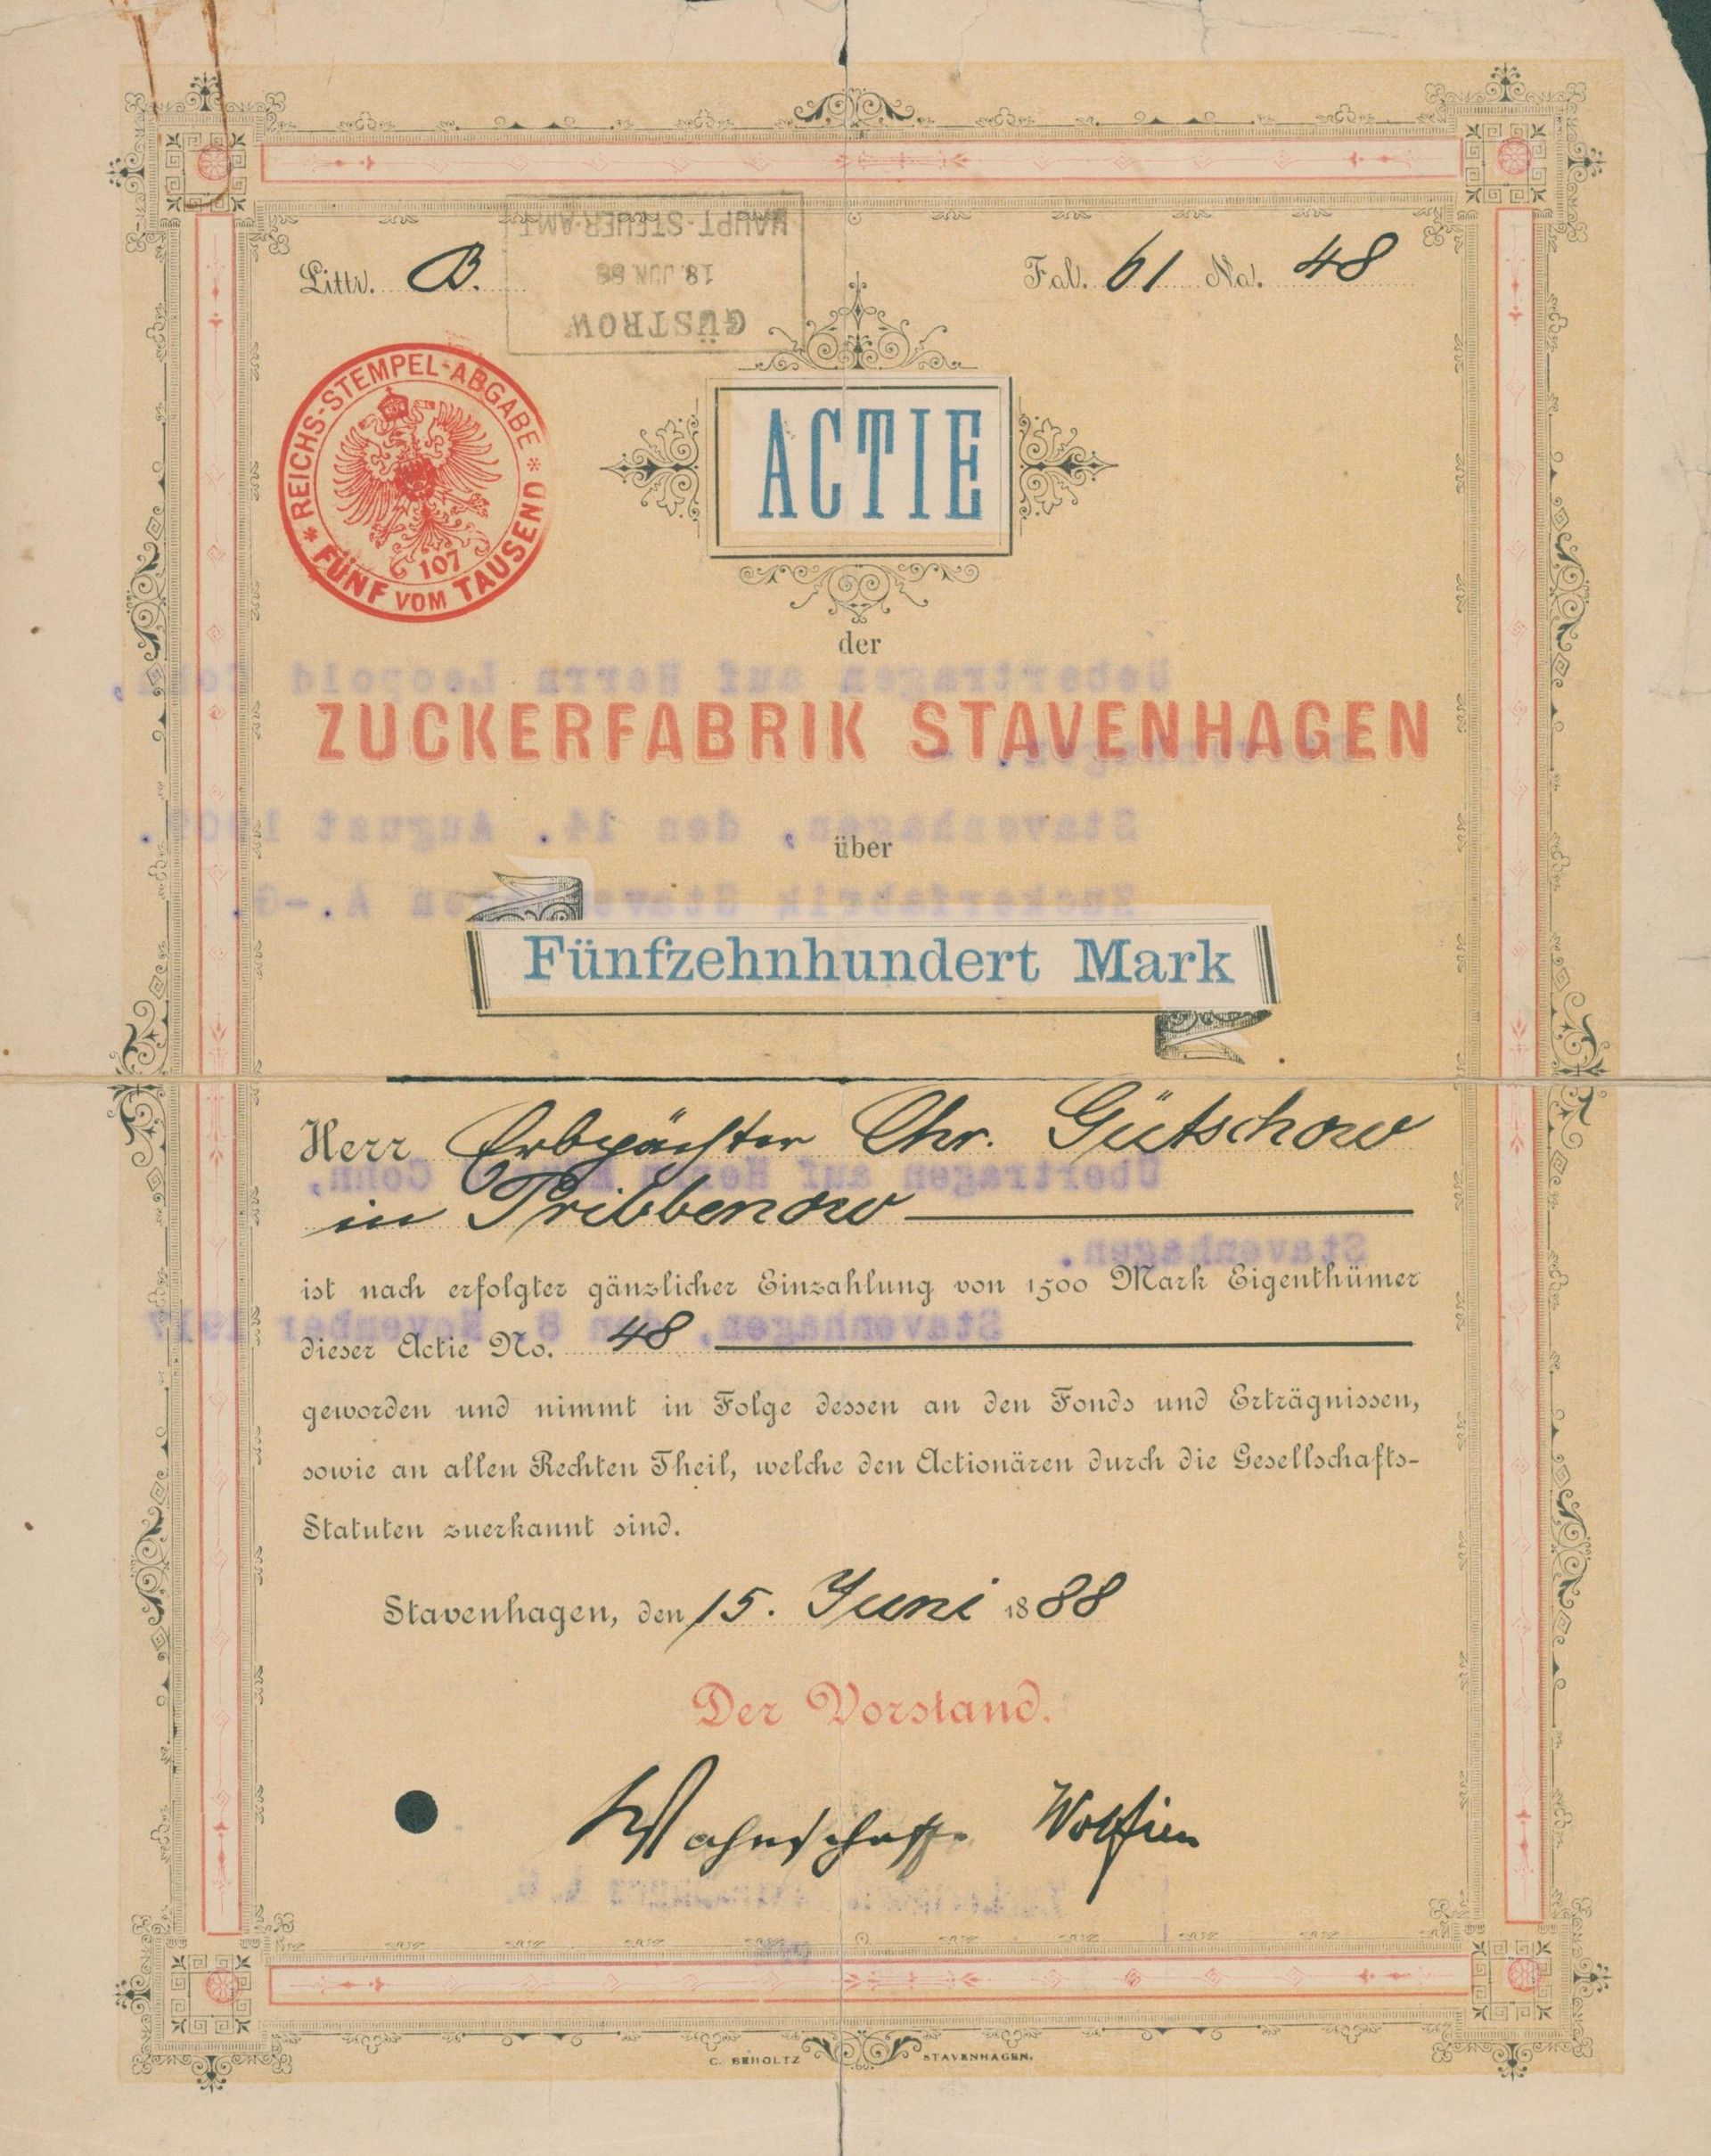 Littr. B.
HAUPT-STEUER-AMT
18. JUN. 88
GÜSTROW
Fol. 61 No. 48
REICHS-STEMPEL-ABGABE
* FÜNF VOM TAUSEND *
107
ACTIE
der
Uebertragen auf Herrn Leopold
ZUCKERFABRIK STAVENHAGEN
Stavenhagen, den 14. August
über
Zuckerfabrik Stavenhagen A.-G.
Fünfzehnhundert Mark
Herr Erbpächter Chr. Gütschow
Übertragen auf Herrn Cohn,
in Pribbenow
Stavenhagen.
ist nach erfolgter gänzlicher Einzahlung von 1500 Mark Eigenthümer
Stavenhagen, den 8. November 1917
dieser Actie No. 48
geworden und nimmt in Folge dessen an den Fonds und Erträgnissen,
sowie an allen Rechten Theil, welche den Actionären durch die Gesellschafts-
Statuten zuerkannt sind.
Stavenhagen, den 15. Juni 1888
Der Vorstand.
Wahnschaffe Wolffien
C. BEHOLTZ STAVENHAGEN.